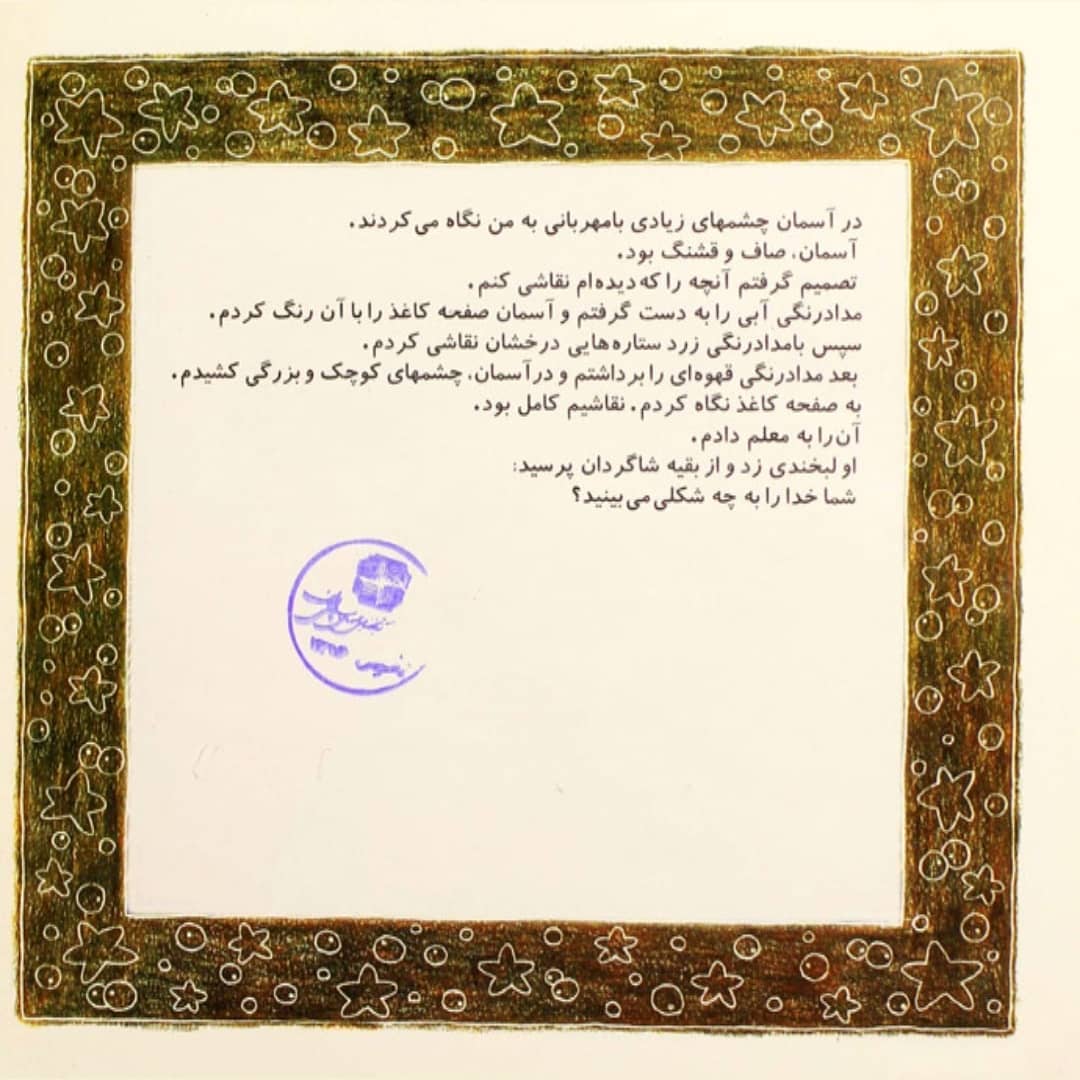 در آسمان چشمهای زیادی بامهربانی به من نگاه می‌کردند.
آسمان، صاف و قشنگ بود.
تصمیم گرفتم آنچه را که دیده‌ام نقاشی کنم.
مدادرنگی آبی را به دست گرفتم و آسمان صفحه کاغذ را با آن رنگ کردم.
سپس بامدادرنگی زرد ستاره‌هایی درخشان نقاشی کردم.
بعد مدادرنگی قهوه‌ای را برداشتم و درآسمان، چشمهای کوچک و بزرگی کشیدم.
به صفحه کاغذ نگاه کردم. نقاشیم کامل بود.
آن را به معلم دادم.
او لبخندی زد و از بقیه شاگردان پرسید:
شما خدا را به چه شکلی می‌بینید؟